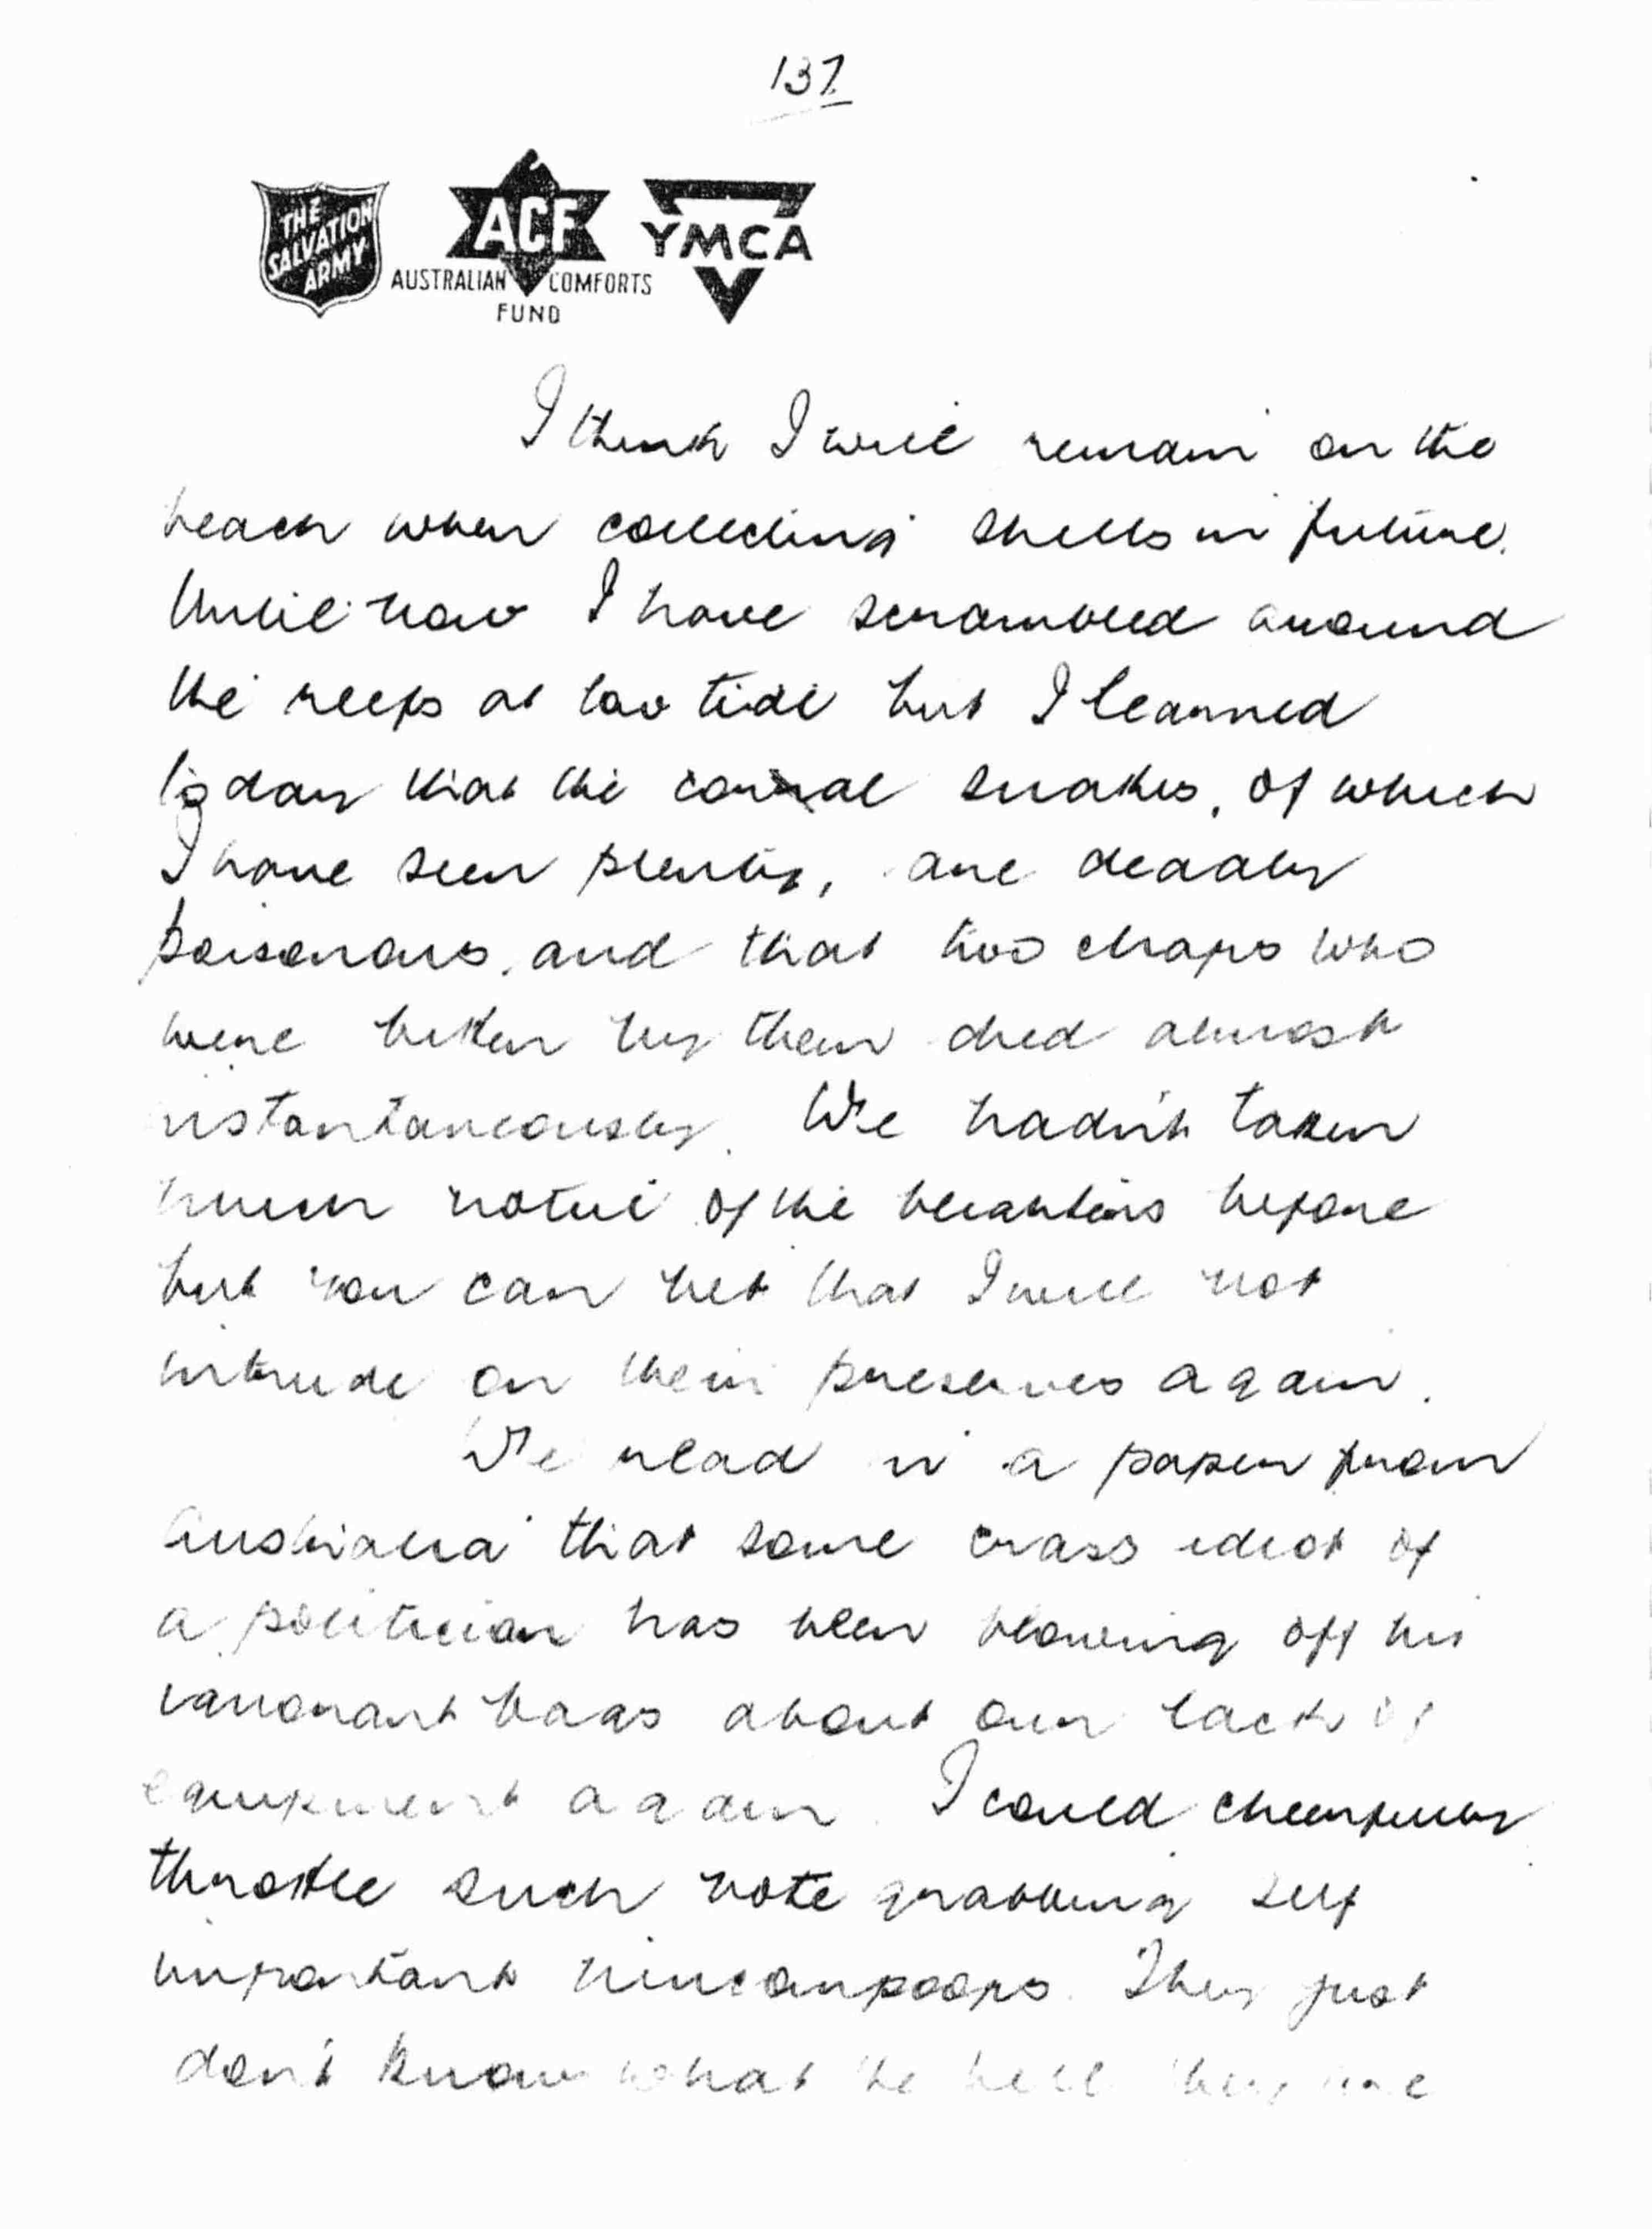 137.
THE SALVATION ARMY
ACF
YMCA
AUSTRALIAN COMFORTS
FUND
I think I will remain on the
beach when collecting shells in future.
Until now I have scrambled around
the reefs at low tide but I learned
today that the coral snakes, of which
I have seen plenty, are deadly
poisonous, and that two chaps who
were bitten by them died almost
instantaneously. We hadn't taken
much notice of the blighters before
but you can bet that I will not
intrude on their preserves again.
We read in a paper from
Australia that some crass idiot of
a politician has been blowing off his
ignorant bags about our lack of
equipment again. I could cheerfully
throttle such vote grabbing self
important nincompoops. They just
don't know what the hell they are